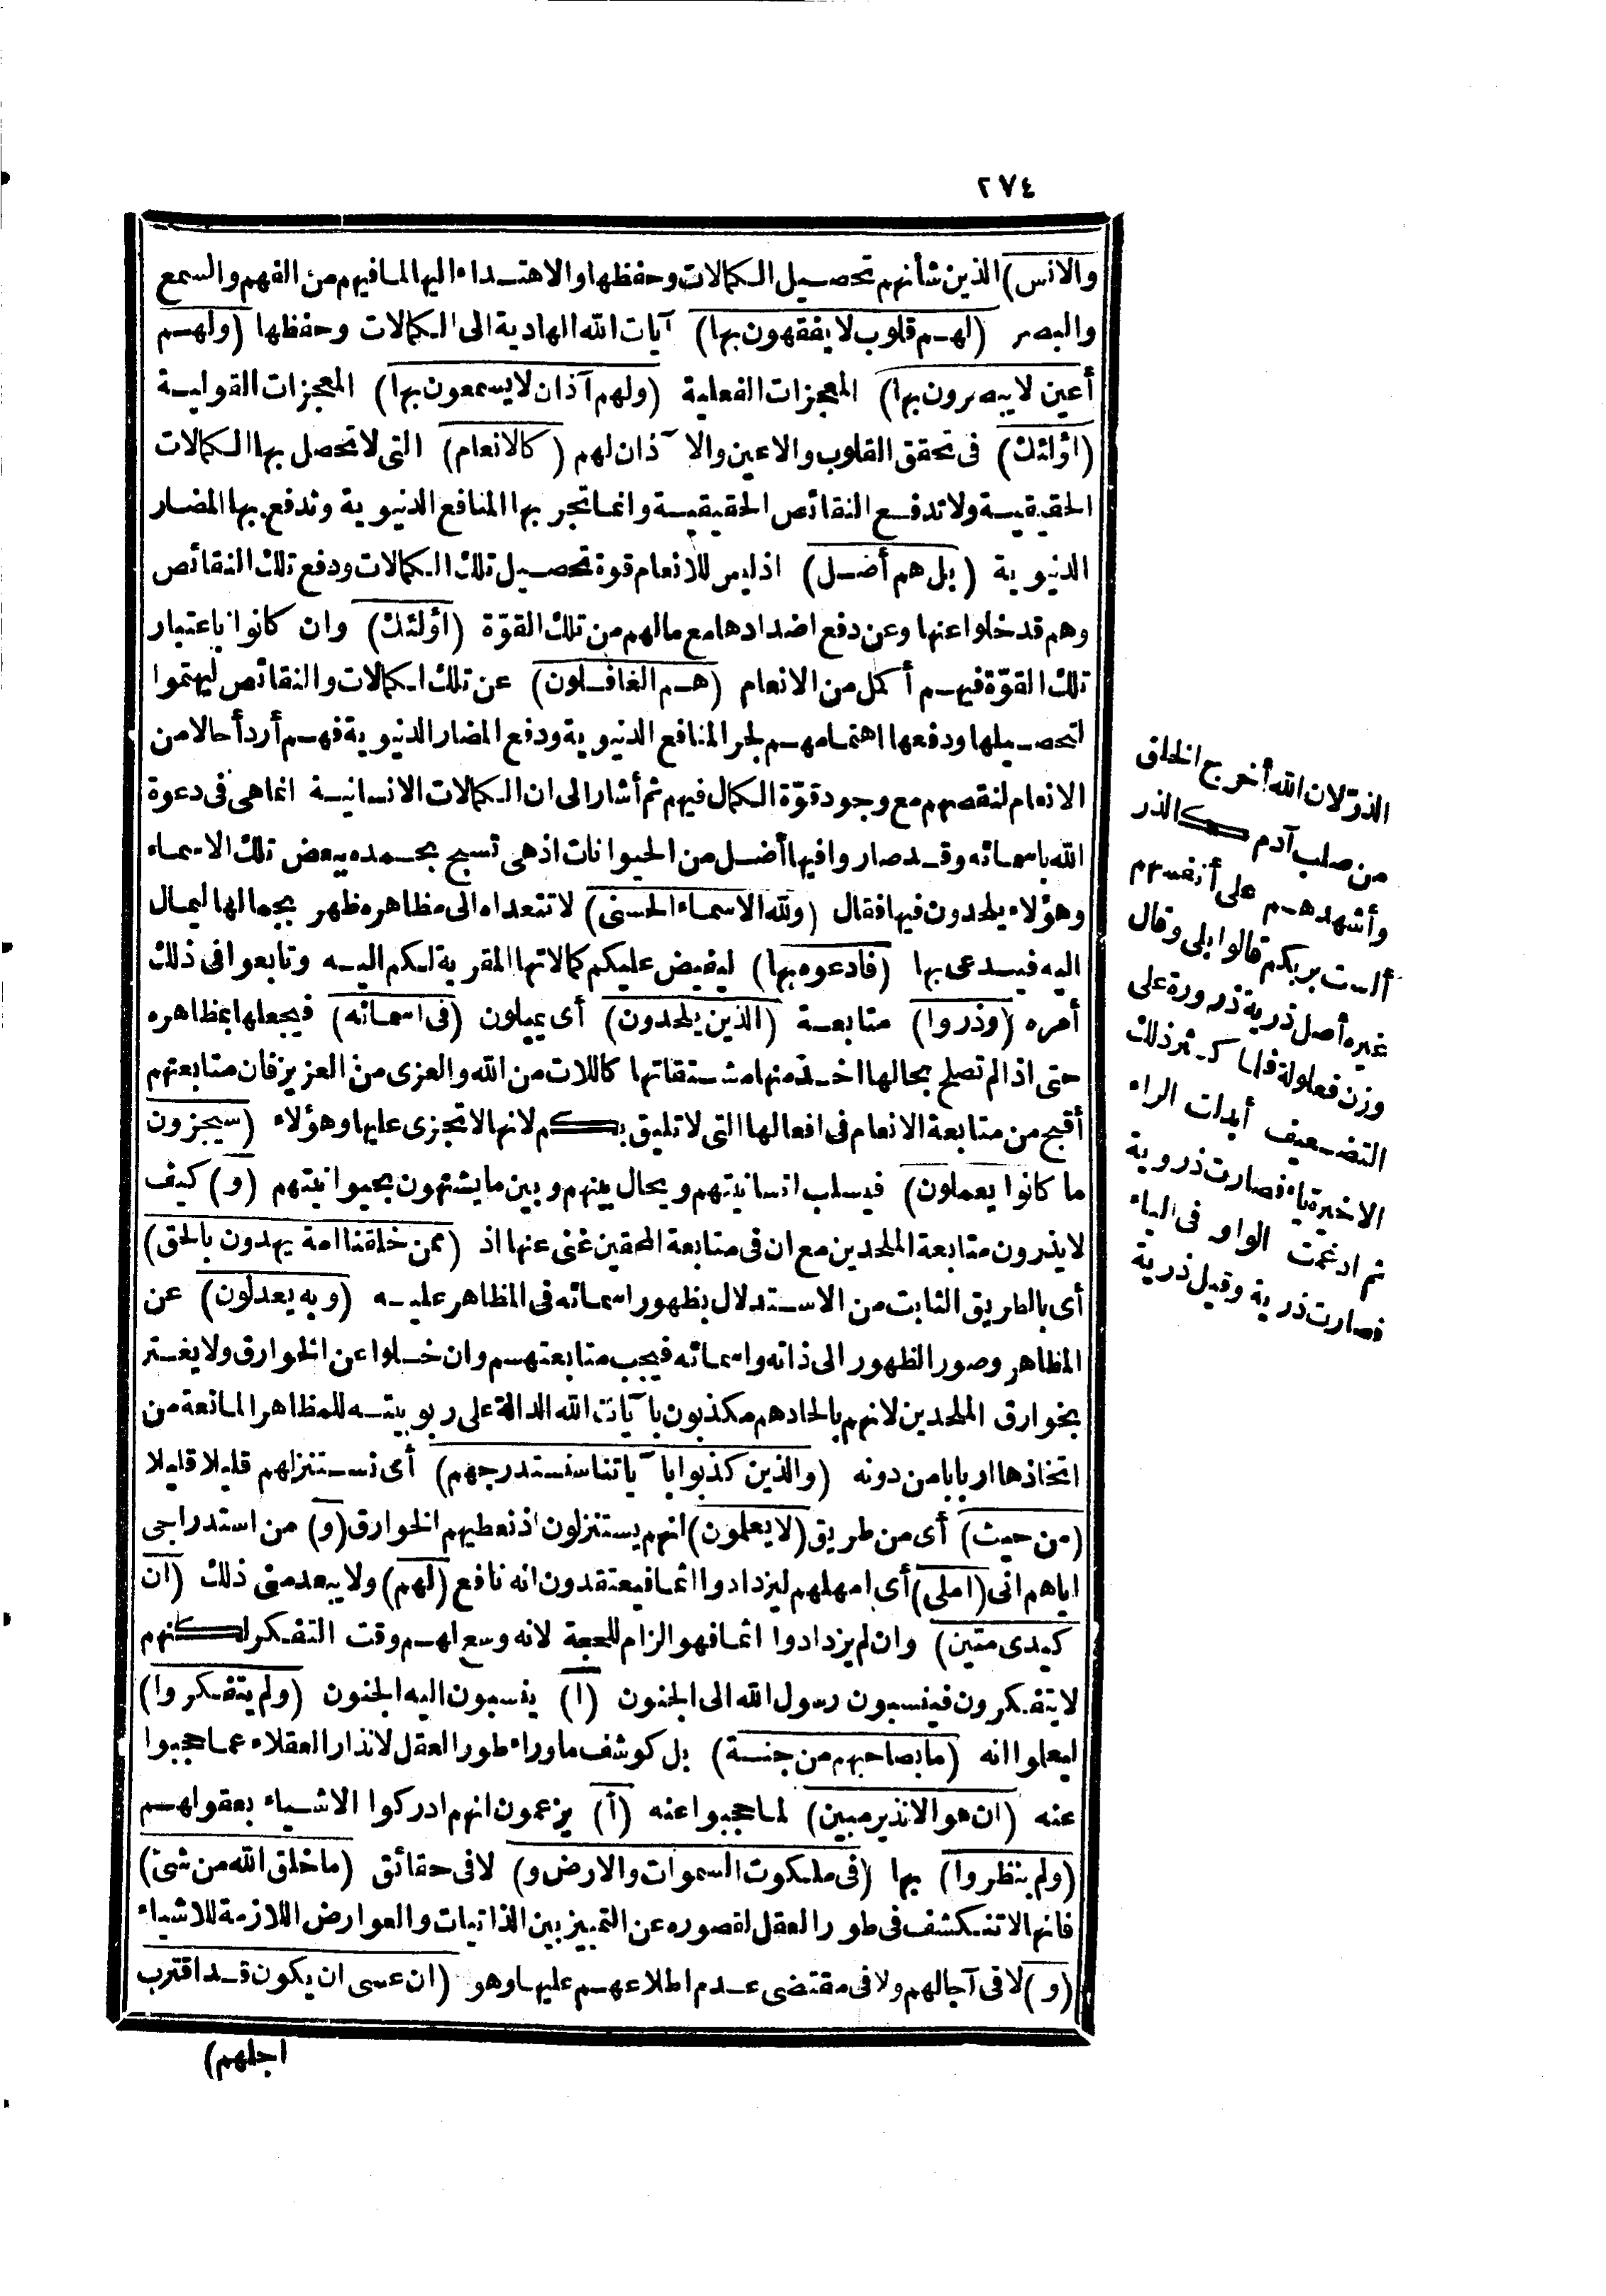 ٢٧٤
والانس) الذين شأنهم تحصيل الكمالات وحفظها والاهتداء اليها لما فيهم من الفهم والسمع
والبصر (لهم قلوب لا يفقهون بها) آيات الله الهادية الى الكمالات وحفظها (ولهم
أعين لا يبصرون بها) المعجزات الفعلية (ولهم آذان لا يسمعون بها) المعجزات القولية
(أولئك) فى تحقق القلوب والاعين والآذان لهم (كالانعام) التى لا تحصل بها الكمالات
الحقيقية ولا تدفع النقائص الحقيقية وانما تجر بها المنافع الدنيوية وتدفع بها المضار
الدنيوية (بل هم أضل) اذ ليس للانعام قوة تحصيل تلك الكمالات ودفع تلك النقائص
وهم قد خلوا عنها وعن دفع اضدادها مع ما لهم من تلك القوّة (أولئك) وان كانوا باعتبار
تلك القوّة فيهم أكمل من الانعام (هم الغافلون) عن تلك الكمالات والنقائص ليهتموا
لتحصيلها ودفعها اهتمامهم لجر المنافع الدنيوية ودفع المضار الدنيوية فهم أردأ حالا من
الانعام لنقصهم مع وجود قوّة الكمال فيهم ثم أشار الى ان الكمالات الانسانية انما هى فى دعوة
الله باسمائه وقد صاروا فيها أضل من الحيوانات اذ هى تسبح بحمده ببعض تلك الاسماء
وهؤلاء يلحدون فيها فقال (ولله الاسماء الحسنى) لا تتعداه الى مظاهره ظهر بجمالها ليمال
اليه فيدعى بها (فادعوه بها) ليفيض عليكم كمالاتها المقربة لكم اليه وتابعوا فى ذلك
أمره (وذروا) متابعة (الذين يلحدون) أى يميلون (فى اسمائه) فيجعلها بمظاهره
حتى اذا لم تصلح بحالها اخذ منها مشتقاتها كاللات من الله والعزى من العزيز فان متابعتهم
أقبح من متابعة الانعام فى افعالها التى لا تليق بكم لانها لا تجزى عليها وهؤلاء (سيجزون
ما كانوا يعملون) فيسلب انسانيتهم ويحال بينهم وبين ما يشتهون بحيوانيتهم (و) كيف
لا يذرون متابعة الملحدين مع ان فى متابعة المحقين غنى عنها اذ (ممن خلقنا امة يهدون بالحق)
أى بالطريق الثابت من الاستدلال بظهور اسمائه فى المظاهر عليه (وبه يعدلون) عن
المظاهر وصور الظهور الى ذاته واسمائه فيجب متابعتهم وان خلوا عن الخوارق ولا يغتر
بخوارق الملحدين لانهم بالحادهم مكذبون بآيات الله الدالة على ربوبيته للمظاهر المانعة من
اتخاذها اربابا من دونه (والذين كذبوا بآياتنا سنستدرجهم) أى نستنزلهم قليلا قليلا
(من حيث) أى من طريق (لا يعلمون) انهم يستنزلون اذ نعطيهم الخوارق (و) من استدراجى
اياهم انى (املى) أى امهلهم ليزدادوا اثما فيعتقدون انه نافع (لهم) ولا يبعد منى ذلك (ان
كيدى متين) وان لم يزدادوا اثما فهو الزام للحجة لانه وسع لهم وقت التفكر لكنهم
لا يتفكرون فينسبون رسول الله الى الجنون (ا) ينسبون اليه الجنون (ولم يتفكروا)
ليعلموا انه (ما بصاحبهم من جنة) بل كوشف ما وراء طور العقل لانذار العقلاء عما حجبوا
عنه (ان هو الا نذير مبين) لما حجبوا عنه (أ) يزعمون انهم ادركوا الاشياء بعقولهم
(ولم ينظروا) بها (فى ملكوت السموات والارض و) لا فى حقائق (ما خلق الله من شئ)
فانها لا تنكشف فى طور العقل لقصوره عن التمييز بين الذاتيات والعوارض اللازمة للاشياء
(و) لا فى آجالهم ولا فى مقتضى عدم اطلاعهم عليها وهو (ان عسى ان يكون قد اقترب
اجلهم)
الذرّ لان الله أخرج الخلق
من صلب آدم كالذر
وأشهدهم على أنفسهم
ألست بربكم قالوا بلى وقال
غيره أصل ذرية ذرورة على
وزن فعلولة فلما كثر ذلك
التضعيف أبدلت الراء
الاخيرة ياء فصارت ذروية
ثم ادغمت الواو فى الياء
فصارت ذرية وقيل ذرية